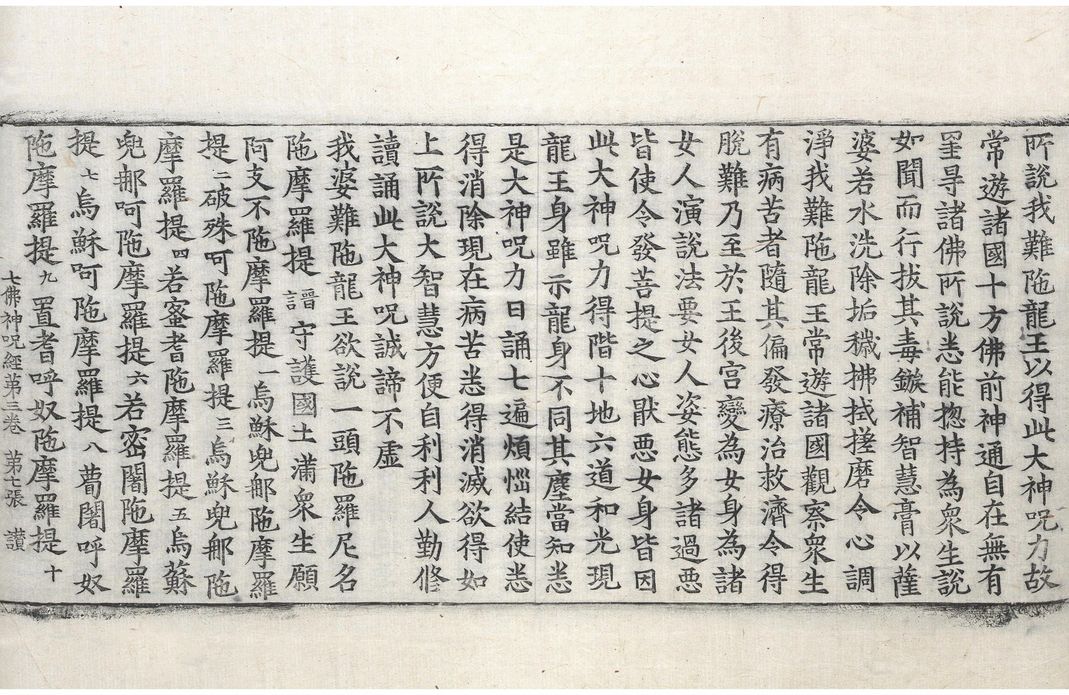 所說我難陁龍王以得此大神呪力故
常遊諸國十方佛前神通自在無有
罣㝵諸佛所說悉能揔持為衆生說
如聞而行拔其毒鏃補智慧膏以薩
婆若水洗除垢穢拂拭揩磨令心調
淨我難陁龍王常遊諸國觀察衆生
有病苦者隨其偏發療治救濟令得
脫難乃至於王後宮變為女身為諸
女人演說法要女人姿態多諸過惡
皆使令發菩提之心猒惡女身皆因
此大神呪力得階十地六道和光現
龍王身雖示龍身不同其塵當知悉
是大神呪力日誦七遍煩惱結使悉
得消除現在病苦悉得消滅欲得如
上所說大智慧方便自利利人勤修
讀誦此大神呪誠諦不虛
我婆難陁龍王欲說一頭陁羅尼名
陁摩羅提 守護國土滿衆生願
阿支不陁摩羅提一烏蘇兜郍陁摩羅
提二破殊呵陁摩羅提三烏蘇兜郍陁
摩羅提四若蜜者陁摩羅提五烏蘇
兜郍呵陁摩羅提六若密闍陁摩羅
提七烏蘇呵陁摩羅提八蔔闍呼奴
陁摩羅提九置者呼奴陁摩羅提十
七佛神呪經第三卷 第七張 讃